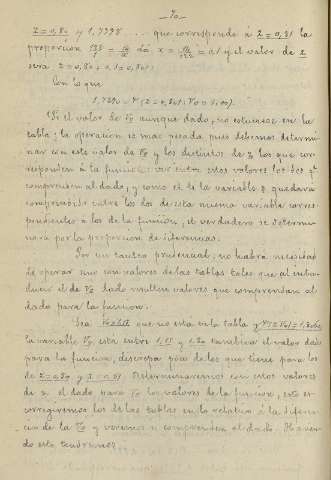 - 70 -
z = 0,80 y 1,7398 ... que corresponde á z = 0,81 la
proporción da x = = 0,1 y el valor de z
sera z = 0,80 + 0,1 = 0,801
Con lo que
Si el valor de V0 aunque dado, no estuviese en la
tabla; la operacion es mas pesada pues debemos determi-
nar con este valor de V0 y los distintos de z los que cor-
responden á la funcion entre estos valores los dos q.e
comprenden al dado, y como el de la variable z quedara
comprendido entre los dos de esta misma variable corres-
pondientes á los de la funcion, el verdadero se determi-
nara por la proporcion de diferencias.
Por un tanteo prudencial, no habrá necesidad
de operar sino con valores de las tablas tales que al introdu-
cir el de V0 dado resulten valores que comprendan al
dado para la funcion.
Sea que no esta en la tabla y
la variable V0 esta entre 1,10 y 1,20 tambien el valor dado
para la funcion, discrepa poco de los que tiene para los
de z = 0,80 y z = 0,81 Determinaremos con estos valores
de z el dado para V0 los valores de la funcion, esto es
corregiremos los de las tablas en lo relativo á la diferen-
cia de la V0 y veremos si comprenden al dado. Hacien-
do esto tendremos